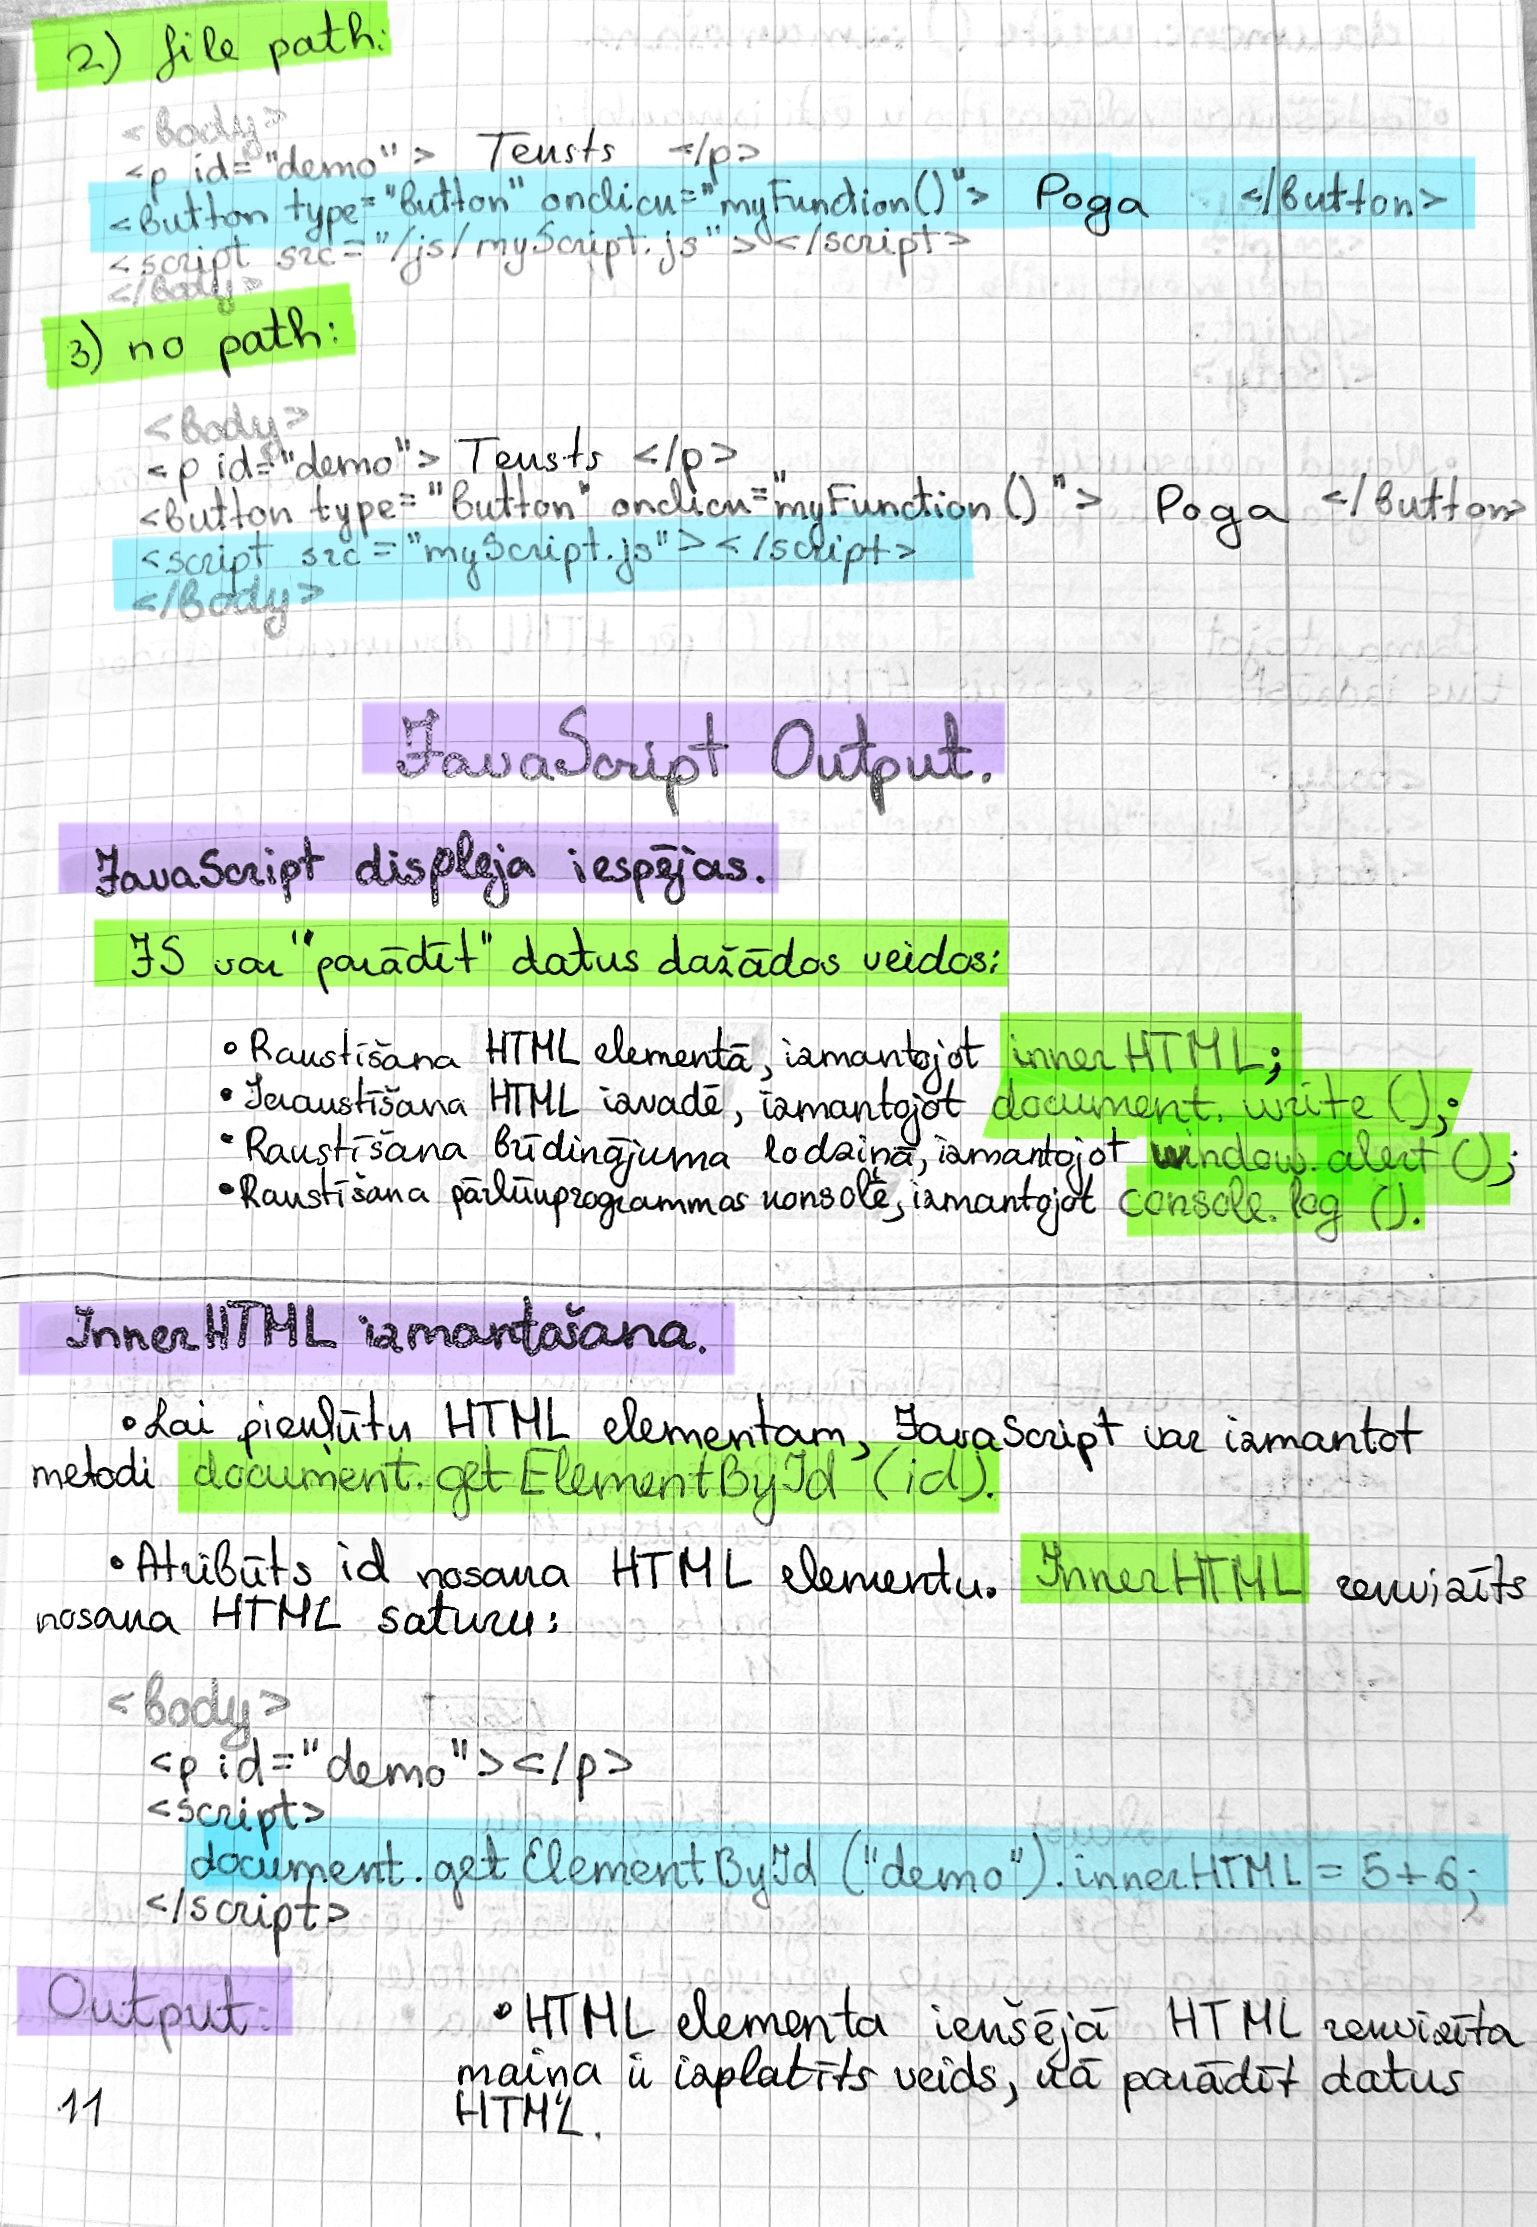 2) file path:
<body>
<p id="demo"> Teksts </p>
<button type="button" onclick="myFunction()"> Poga </button>
<script src="/js/myScript.js"></script>
</body>
3) no path:
<body>
<p id="demo"> Teksts </p>
<button type="button" onclick="myFunction()"> Poga </button>
<script src="myScript.js"></script>
</body>
JavaScript Output.
JavaScript displeja iespējas.
JS var "parādīt" datus dažādos veidos:
• Rakstīšana HTML elementā, izmantojot innerHTML;
• Ierakstīšana HTML izvadē, izmantojot document.write();
• Rakstīšana brīdinājuma lodziņā, izmantojot window.alert();
• Rakstīšana pārlūkprogrammas konsolē, izmantojot console.log().
InnerHTML izmantošana.
• Lai piekļūtu HTML elementam, JavaScript var izmantot
metodi document.getElementById(id).
• Atribūts id nosaka HTML elementu. InnerHTML rekvizīts
nosaka HTML saturu:
<body>
<p id="demo"></p>
<script>
document.getElementById("demo").innerHTML = 5+6;
</script>
Output:
11
• HTML elementa iekšējā HTML rekvizīta
maiņa ir izplatīts veids, kā parādīt datus
HTML.